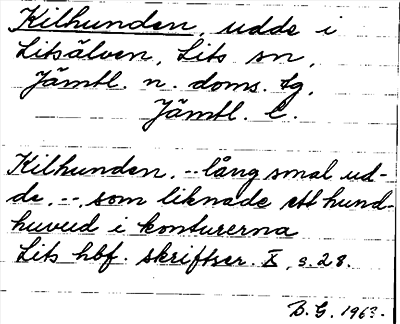 Kilhunden, udde i
Litsälven, Lits sn,
Jämtl. n. doms. tg,
Jämtl. l.
Kilhunden, -- lång smal ud-
de, --, som liknade ett hund-
huvud i konturerna
Lits hbf. skriftser. X, s. 28.
B. G. 1963.